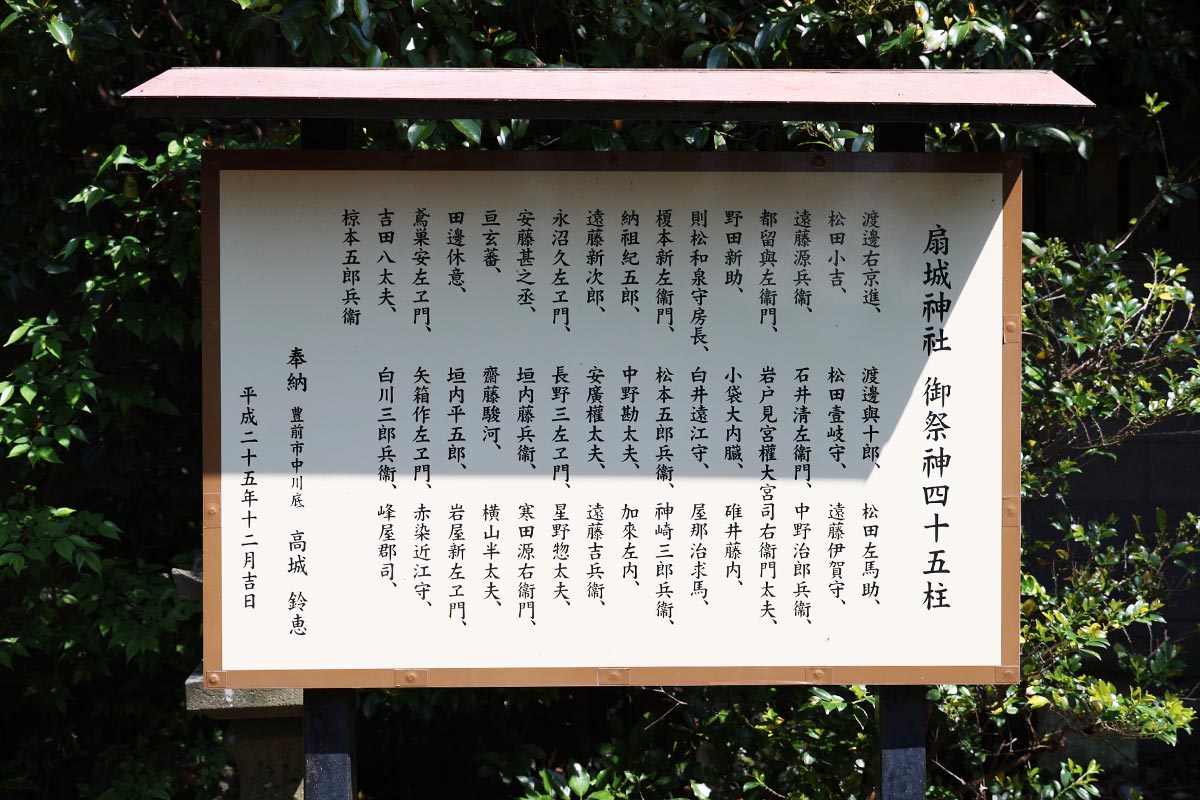 扇城神社 御祭神四十五柱
渡邊右京進、 渡邊與十郎、 松田左馬助、
松田小吉、 松田壹岐守、 遠藤伊賀守、
遠藤源兵衞、 石井清左衞門、 中野治郎兵衞、
都留與左衞門、 岩戸見宮權大宮司右衞門太夫、
野田新助、 小袋大内臓、 碓井藤内、
則松和泉守房長、 白井遠江守、 屋那治求馬、
榎本新左衞門、 松本五郎兵衞、 神崎三郎兵衞、
納祖紀五郎、 中野勘太夫、 加來左内、
遠藤新次郎、 安廣權太夫、 遠藤吉兵衞、
永沼久左ヱ門、 長野三左ヱ門、 星野惣太夫、
安藤甚之丞、 垣内藤兵衞、 寒田源右衞門、
亘玄蕃、 齋藤駿河、 横山半太夫、
田邊休意、 垣内平五郎、 岩屋新左ヱ門、
鳶巣安左ヱ門、 矢箱作左ヱ門、 赤染近江守、
吉田八太夫、 白川三郎兵衞、 峰屋郡司、
椋本五郎兵衞
奉納 豊前市中川底 高城 鈴恵
平成二十五年十二月吉日